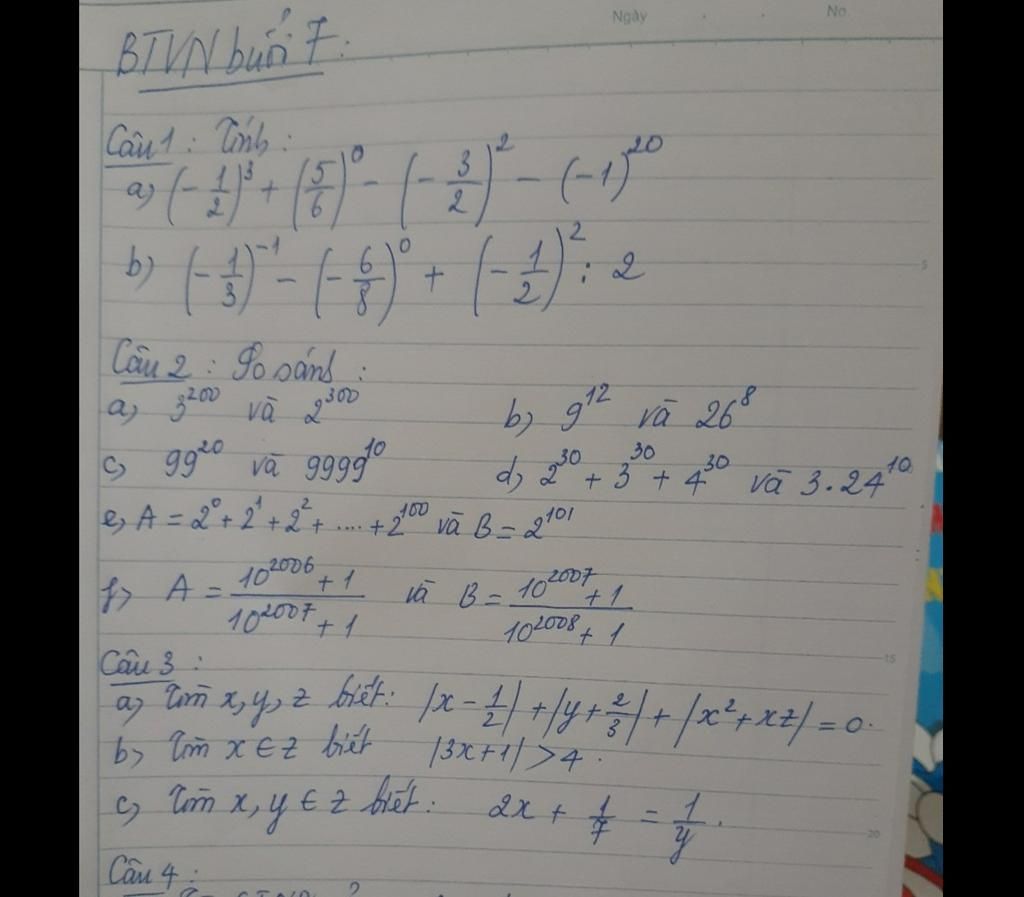 Ngày . . No.
BTVN buổi 7:
Câu 1: Tính:
a) (-1/2)^3 + (5/6)^0 - (-3/2)^2 - (-1)^20
b) (-1/3)^-1 - (-6/8)^0 + (-1/2)^2 : 2
Câu 2: So sánh:
a) 3^200 và 2^300 b) 9^12 và 26^8
c) 99^20 và 9999^10 d) 2^30 + 3^30 + 4^30 và 3.24^10
e) A = 2^0 + 2^1 + 2^2 + .... + 2^100 và B = 2^101
f) A = (10^2006 + 1)/(10^2007 + 1) và B = (10^2007 + 1)/(10^2008 + 1)
Câu 3:
a) Tìm x, y, z biết: |x - 1/2| + |y + 2/3| + |x^2 + xz| = 0.
b) Tìm x ∈ z biết |3x+1| > 4.
c) Tìm x, y ∈ z biết: 2x + 1/7 = 1/y.
Câu 4:
5
15
20